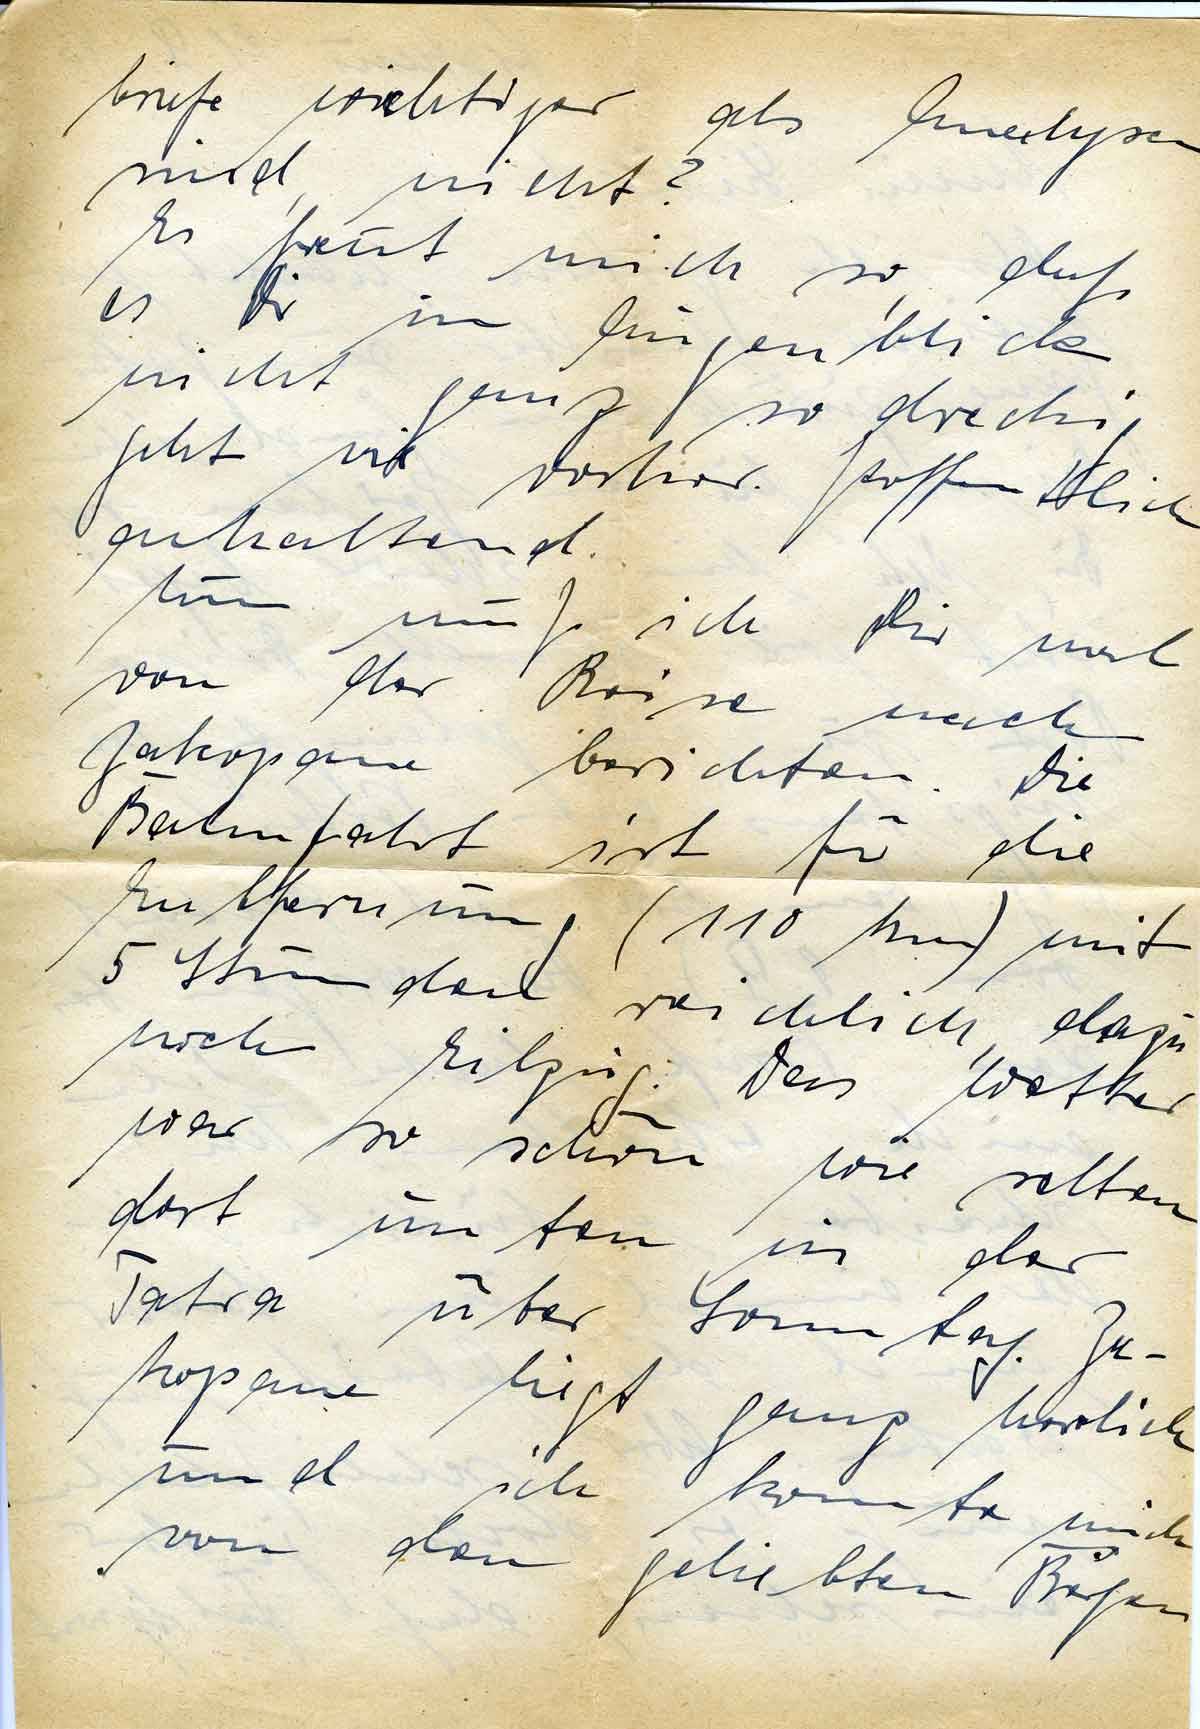 briefe wichtiger als Analysen
sind, nicht?
Es freut mich so, daß
es Dir im Augenblick
nicht ganz so dreckig
geht wie vorher. Hoffentlich
anhaltend.
Nun muß ich Dir noch
von der Reise nach
Zakopane berichten. Die
Bahnfahrt ist für die
Entfernung (110 km) mit
5 Stunden reichlich, dazu
noch Eilzug. Das Wetter
war so schön wie selten
dort unten in der
Tatra über Sonntag. Za-
kopane liegt ganz herrlich
und ich konnte mich
von den geliebten Bergen